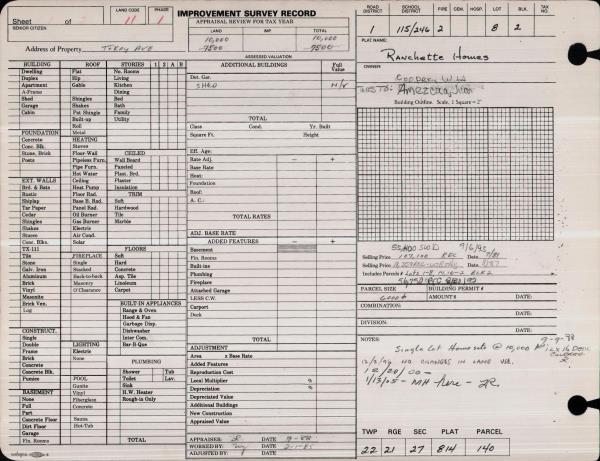 Sheet 1 of 2
SENIOR CITIZEN
LAND CODE
PHASE
11
1
IMPROVEMENT SURVEY RECORD
APPRAISAL REVIEW FOR TAX YEAR
LAND IMP. TOTAL LAND IMP. TOTAL
10,000 10,000
7500 7500
Address of Property Tokay Ave
ASSESSED VALUATION
ROAD DISTRICT
SCHOOL DISTRICT
FIRE CEM. HOSP. LOT BLK. TAX NO.
1 115/246 2 8 2
PLAT NAME:
Ranchette Homes
OWNER:
Building Outline. Scale, 1 Square = 2'
BUILDING ROOF STORIES 1 2 A B
Dwelling Flat No. Rooms
Duplex Hip Living
Apartment Gable Kitchen
A-Frame Dining
Shed Shingles Bed
Garage Shakes Bath
Cabin Pat Shingle Family
Built-up Utility
Roll
FOUNDATION Metal
Concrete HEATING
Conc. Blk. Stoves CEILED
Stone, Brick Floor-Wall Wall Board
Posts Pipeless Furn. Paneled
Pipe Furn. Plast. Brd.
Hot Water Plaster
EXT. WALLS Ceiling Insulation
Brd. & Bats Heat Pump
Rustic Floor Rad. TRIM
Shiplap Base B. Rad. Soft
Tar Paper Panel Rad. Hardwood
Cedar Oil Burner Tile
Shingles Gas Burner Marble
Shakes Electric
Stucco Air Cond.
Conc. Blks. Solar FLOORS
TX-111 Soft
Tile FIREPLACE Hard
Stone Single Concrete
Galv. Iron Stacked Asp. Tile
Aluminum Back-to-back Linoleum
Brick Masonry Carpet
Vinyl O'Clearance
Masonite
Brick Ven. BUILT-IN APPLIANCES
Log Range & Oven
Hood & Fan
Garbage Disp.
CONSTRUCT. Dishwasher
Single Inter Com.
Double LIGHTING Bar-B-Que
Frame Electric
Brick None PLUMBING
Concrete Shower Tub
Concrete Blk. Toilet Lav.
Pumice POOL Sink
Gunite H.W. Heater
BASEMENT Vinyl Rough-in Only
None Fiberglass
Full Concrete
Part
Concrete Floor Sauna
Dirt Floor Hot-Tub
Garage
Fin. Rooms TOTAL
ADDITIONAL BUILDINGS Full Value
Det. Gar.
SHED N/V
TOTAL
Class Cond. Yr. Built
Square Ft. Height
Eff. Age:
Rate Adj. − +
Base Rate:
Heat:
Foundation
Roof:
A. C.:
TOTAL RATES
ADJ. BASE RATE
ADDED FEATURES − +
Basement
Fin. Rooms
Built-ins
Plumbing
Fireplace
Attached Garage
LESS C.W.
Carport
Deck
TOTAL
ADJUSTMENT
Area x Base Rate
Added Features
Reproduction Cost
Local Multiplier %
Depreciation %
Depreciated Value
Additional Buildings
New Construction
Appraised Value
APPRAISER: DATE
WORKED BY: DATE 2-1-85
ADJUSTED BY DATE
9/6/93
Selling Price 107,100 REC
Selling Price
Includes Parcels #
PARCEL SIZE
BUILDING PERMIT #
AMOUNT $ DATE:
COMBINATION:
DATE:
DIVISION:
DATE:
NOTES:
Single lot Home site @ 10,000
NO CHANGES IN LAND USE
1/28/00 —
1/13/05 - MH here -
TWP RGE SEC PLAT PARCEL
22 21 27 814 140